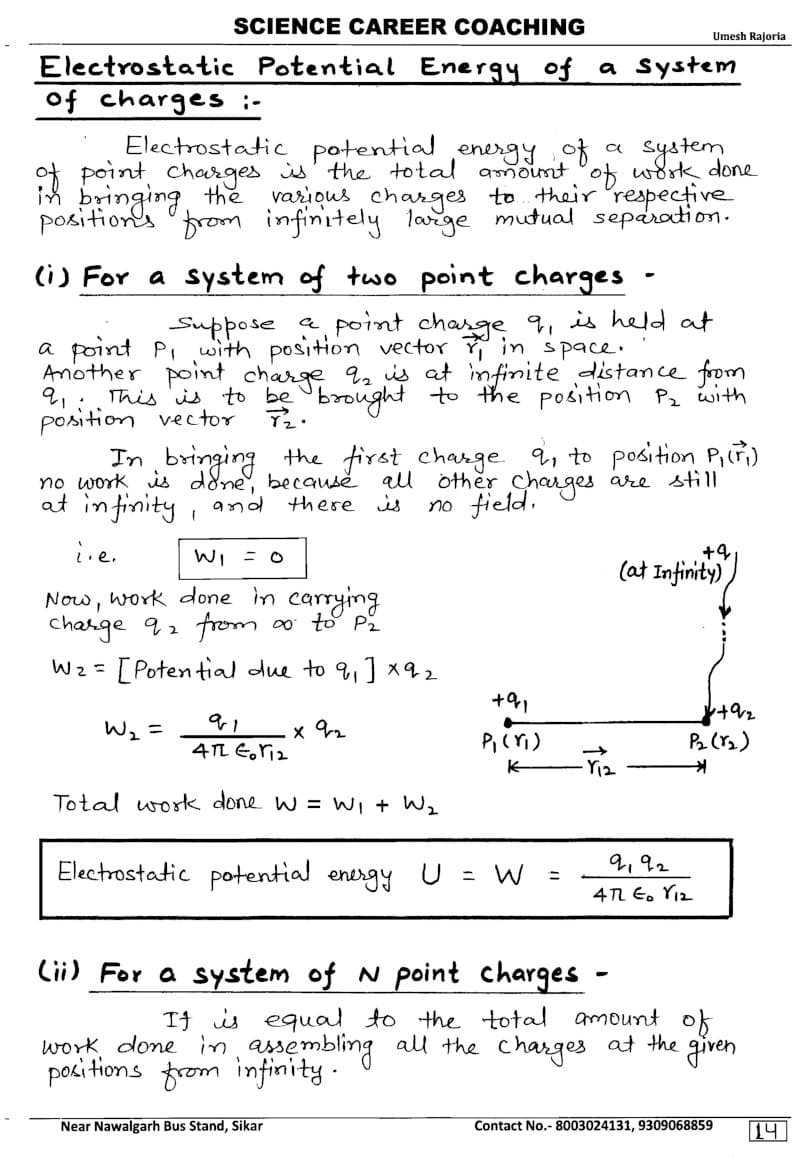 SCIENCE CAREER COACHING
Umesh Rajoria
Electrostatic Potential Energy of a System
of charges :-
Electrostatic potential energy of a system
of point charges is the total amount of work done
in bringing the various charges to their respective
positions from infinitely large mutual separation.
(i) For a system of two point charges -
Suppose a point charge q₁ is held at
a point P₁ with position vector r⃗₁ in space.
Another point charge q₂ is at infinite distance from
q₁. This is to be brought to the position P₂ with
position vector r⃗₂.
In bringing the first charge q₁ to position P₁(r⃗₁)
no work is done, because all other charges are still
at infinity, and there is no field.
i.e. W₁ = 0
+q
(at Infinity)
Now, work done in carrying
charge q₂ from ∞ to P₂
W₂ = [Potential due to q₁] × q₂
W₂ = q₁ / 4π ε₀ r₁₂ × q₂
+q₁
+q₂
P₁(r₁)
P₂(r₂)
r⃗₁₂
Total work done W = W₁ + W₂
Electrostatic potential energy U = W = q₁ q₂ / 4π ε₀ r₁₂
(ii) For a system of N point charges -
It is equal to the total amount of
work done in assembling all the charges at the given
positions from infinity.
Near Nawalgarh Bus Stand, Sikar
Contact No.- 8003024131, 9309068859
14